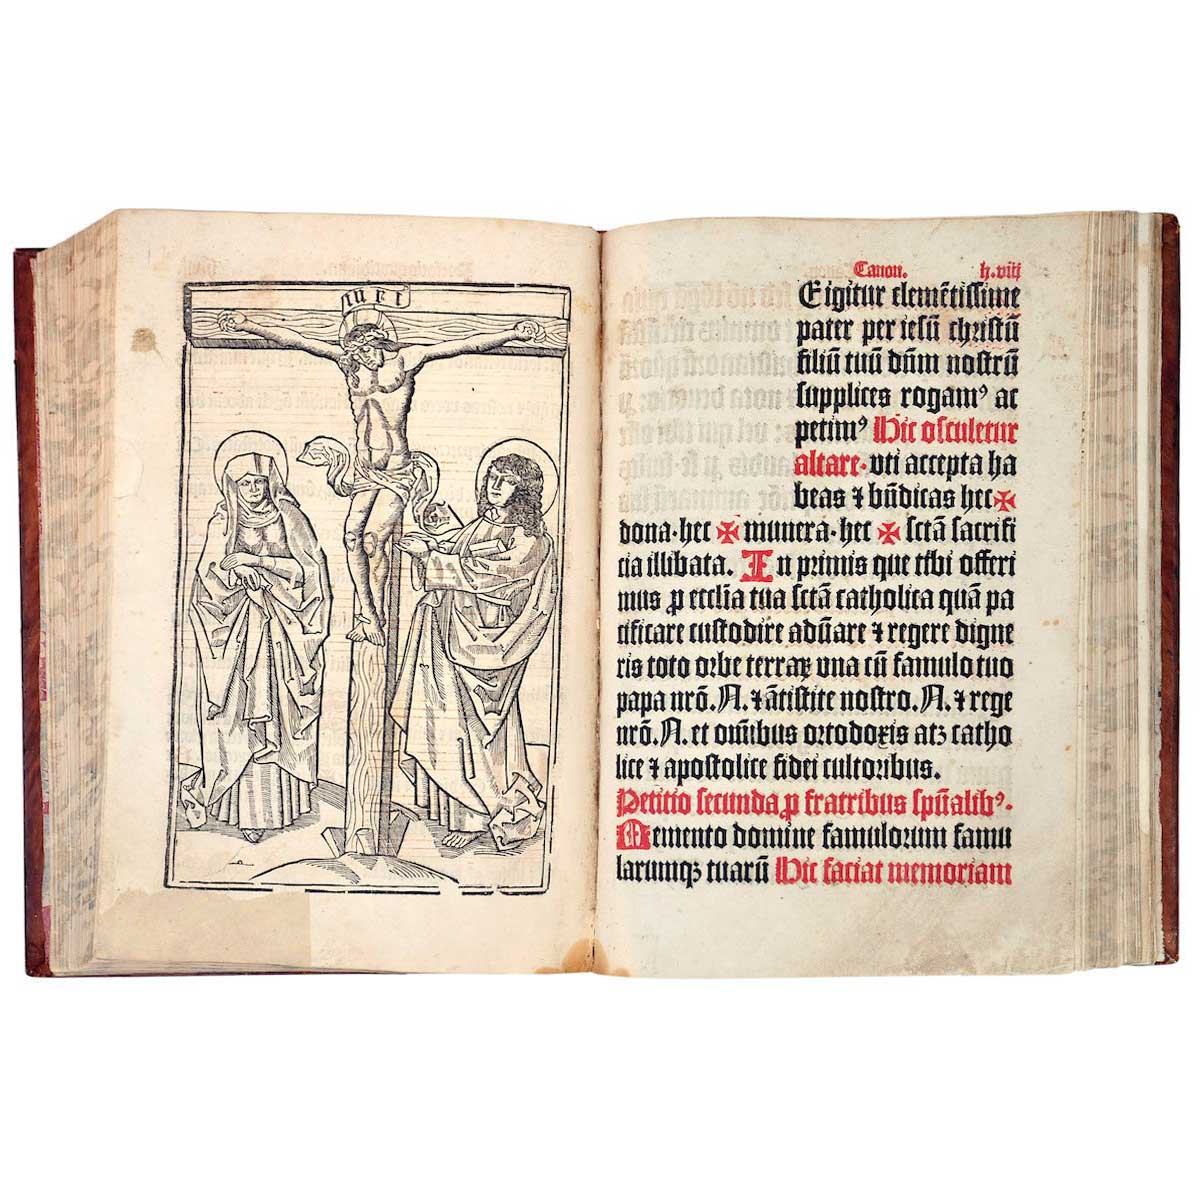 INRI
Canon. h.viij
E igitur clemētissime
pater per iesū christū
filiū tuū dn̄m nostrū
supplices rogamꝰ ac
petimꝰ Hic osculetur
altare. vti accepta ha
beas ⁊ bn̄dicas hec ✠
dona. hec ✠ munera. hec ✠ sctā sacrifi
cia illibata. In primis que tibi offeri
mus ꝓ eccl̄ia tua sctā catholica quā pa
cificare custodire adūare ⁊ regere digne
ris toto orbe terraꝝ vna cū famulo tuo
papa nrō. N. ⁊ ātistite nostro. N. ⁊ rege
nrō. N. et om̄ibus ortodoxis atꝫ catho
lice ⁊ apostolice fidei cultoribus.
Petitio secunda ꝓ fratribus spūalibꝰ.
Memento domine famulorum famu
larumqꝫ tuarū Hic faciat memoriam